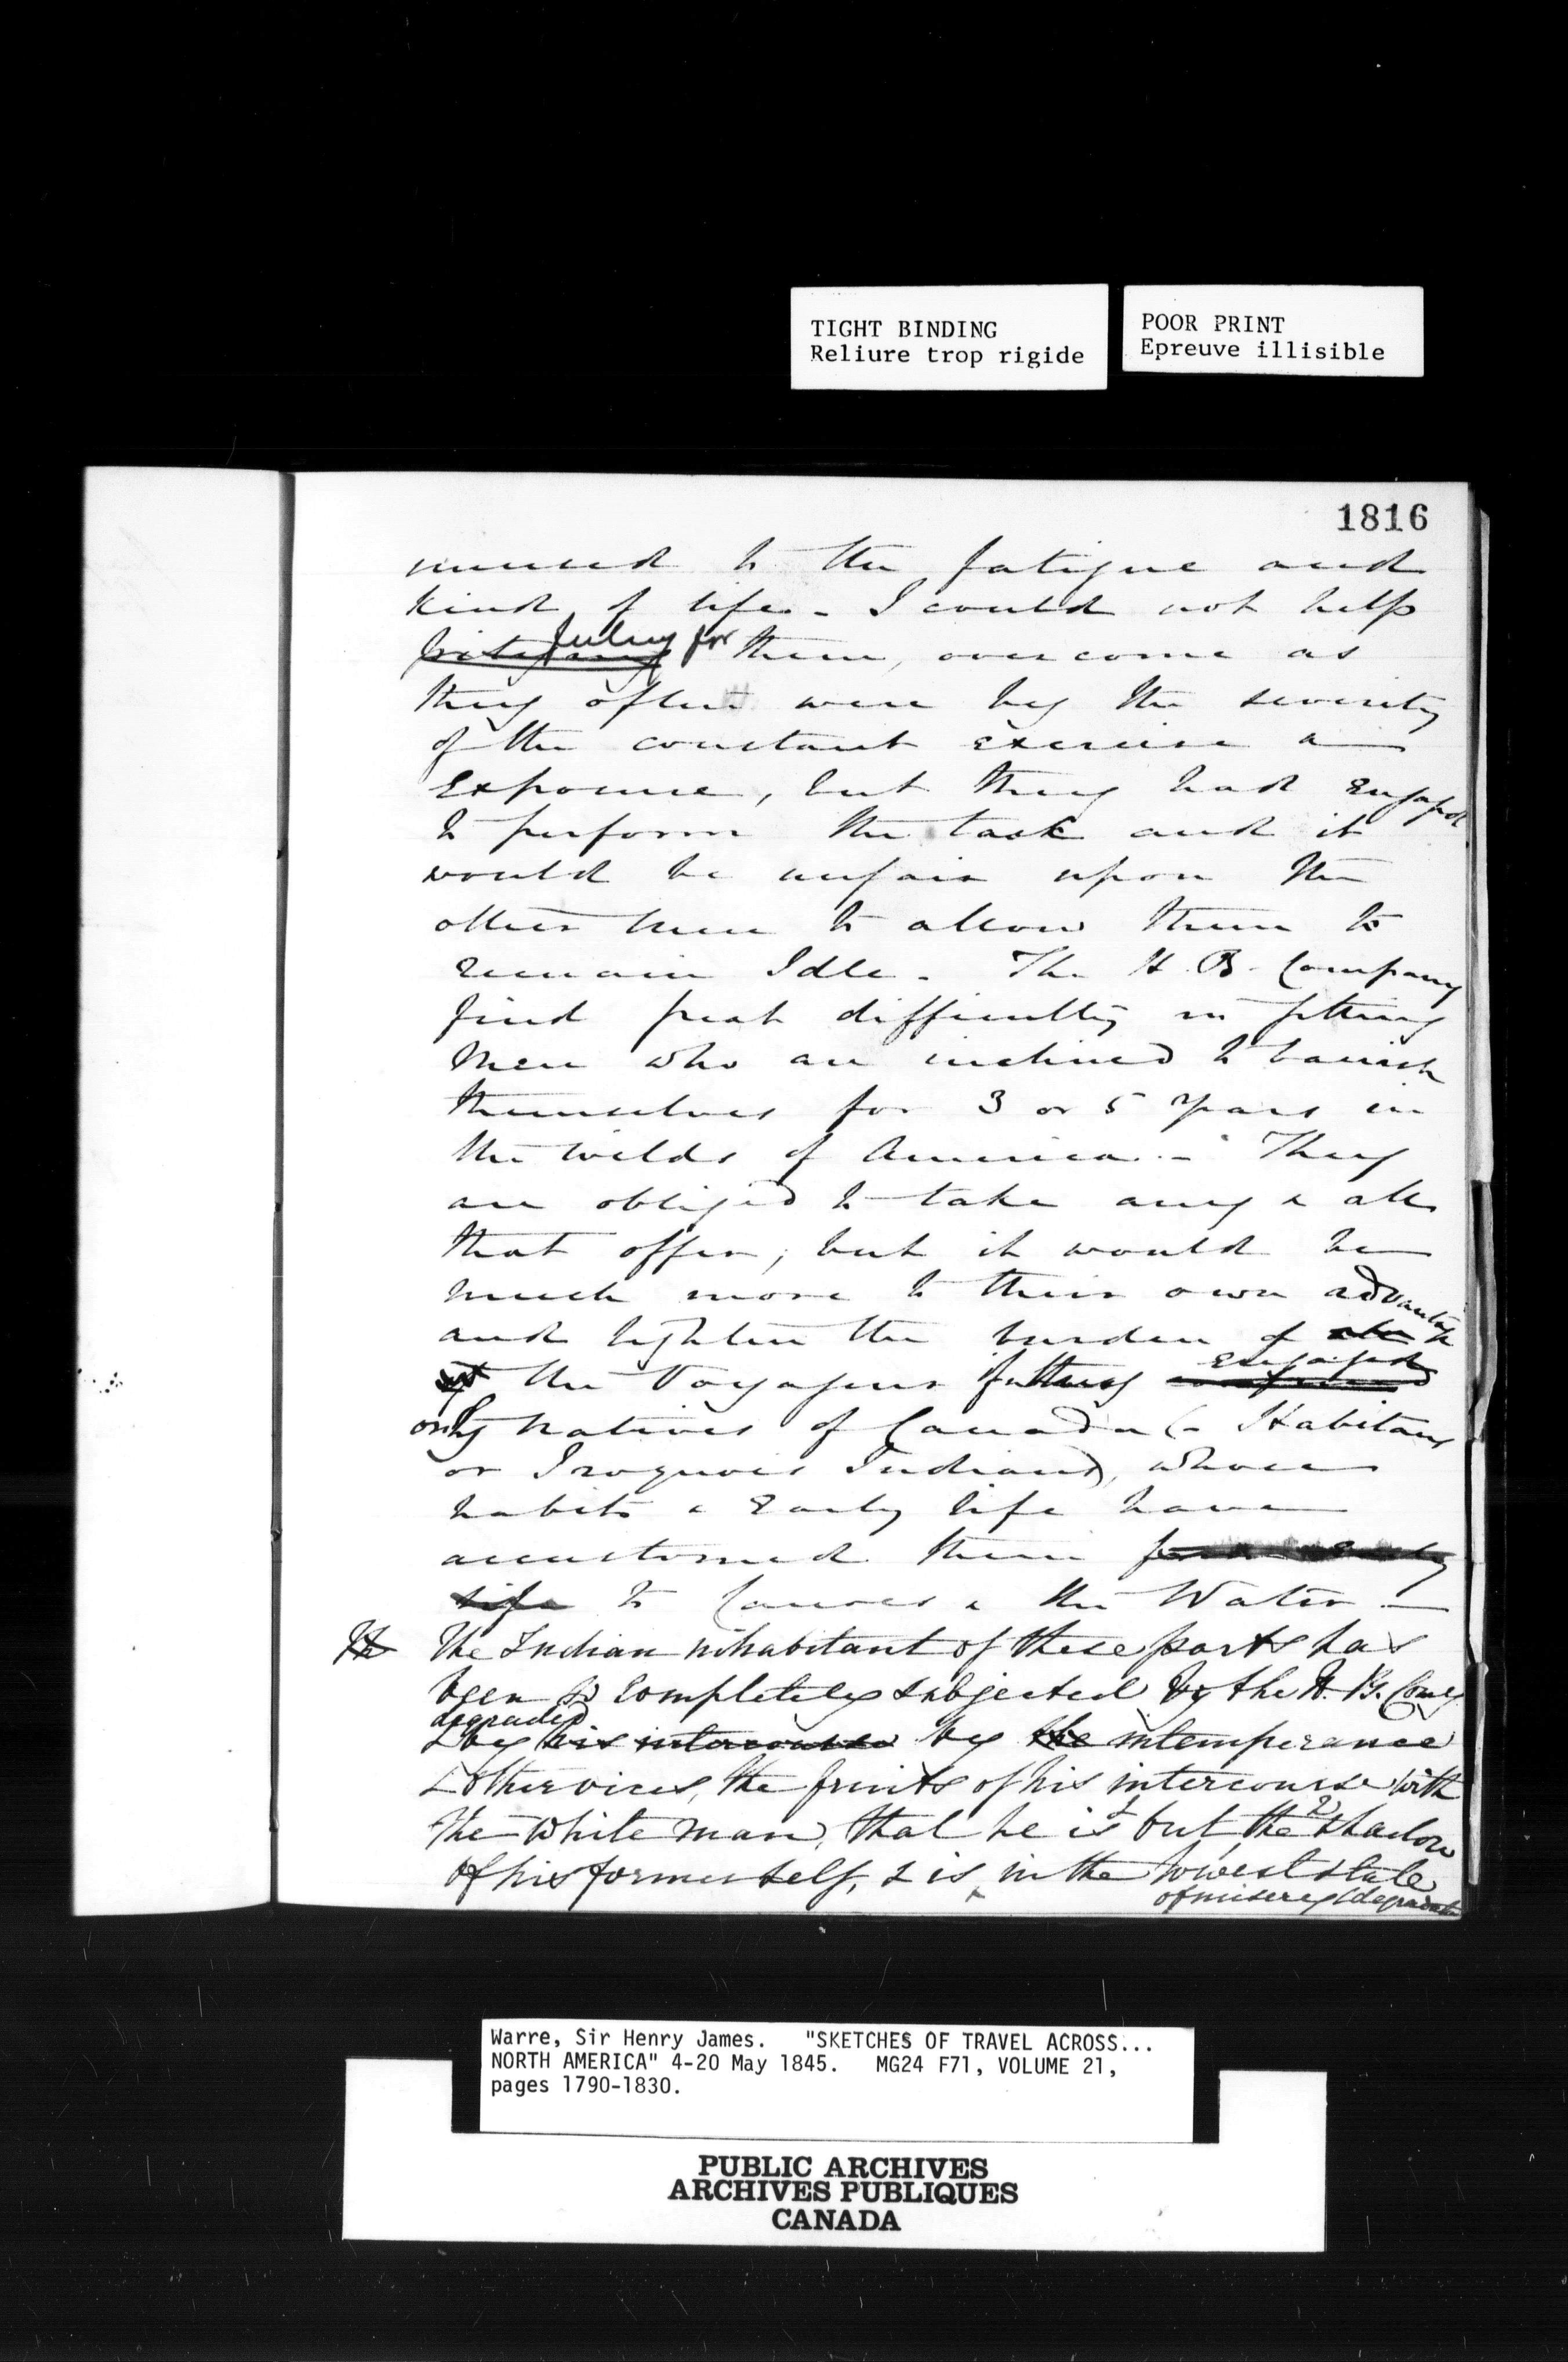 TIGHT BINDING
Reliure trop rigide
POOR PRINT
Epreuve illisible
1816
to the fatigue and
kind of life - I could not help
feeling for them, overcome as
they often were by the severity
of the constant exercise &
Exposure, but they had Engaged
to perform the task and it
would be unfair upon the
other men to allow them to
remain Idle - The H. B. Company
find great difficulty in getting
Men who are inclined to banish
themselves for 3 or 5 years in
the wilds of America - They
are obliged to take any & all
that offer, but it would be
much more to their own advantage
and lighten the burden of
the Voyageurs getting engaged
only natives of Canada (- Habitans
or Iroquois Indians), whose
habits & Early life have
accustomed them
life to Canoes & the Water -
The Indian inhabitant of these parts has
been so completely subjected by the H. B. Comy
degraded
& by his intercourse by the intemperance
& other vices, the fruits of his intercourse with
the White man, that he is but the shadow
of his former self, & is in the lowest state
of misery & degradation
Warre, Sir Henry James. "SKETCHES OF TRAVEL ACROSS...
NORTH AMERICA" 4-20 May 1845. MG24 F71, VOLUME 21,
pages 1790-1830.
PUBLIC ARCHIVES
ARCHIVES PUBLIQUES
CANADA